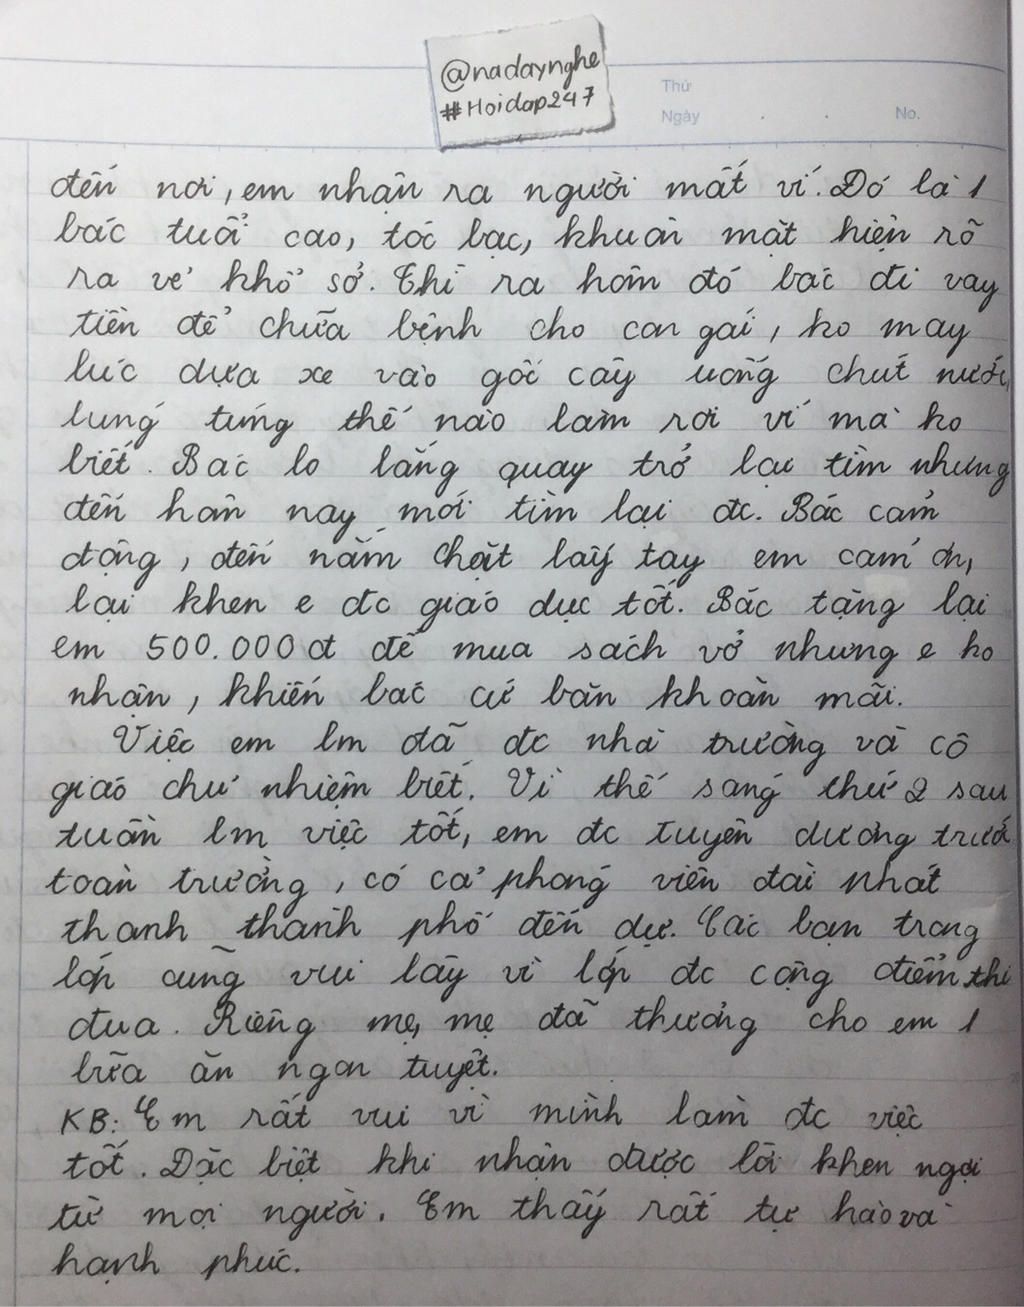 @nadaynghe
#Hoidap247
Thứ
Ngày
No.
đến nơi, em nhận ra người mất ví. Đó là 1
bác tuổi cao, tóc bạc, khuôn mặt hiện rõ
ra vẻ khổ sở. Thì ra hôm đó bác đi vay
tiền để chữa bệnh cho con gái, ko may
lúc dựa xe vào gốc cây uống chút nước,
lúng túng thế nào làm rơi ví mà ko
biết. Bác lo lắng quay trở lại tìm nhưng
đến hôm nay mới tìm lại đc. Bác cảm
động, đến nắm chặt lấy tay em cảm ơn,
lại khen e đc giáo dục tốt. Bác tặng lại
em 500.000đ để mua sách vở nhưng e ko
nhận, khiến bác cứ băn khoăn mãi.
Việc em lm đã đc nhà trường và cô
giáo chủ nhiệm biết. Vì thế sáng thứ 2 sau
tuần lm việc tốt, em đc tuyên dương trước
toàn trường, có cả phóng viên đài phát
thanh thành phố đến dự. Các bạn trong
lớp cũng vui lây vì lớp đc cộng điểm thi
đua. Riêng mẹ, mẹ đã thưởng cho em 1
bữa ăn ngon tuyệt.
KB: Em rất vui vì mình làm đc việc
tốt. Đặc biệt khi nhận được lời khen ngợi
từ mọi người. Em thấy rất tự hào và
hạnh phúc.